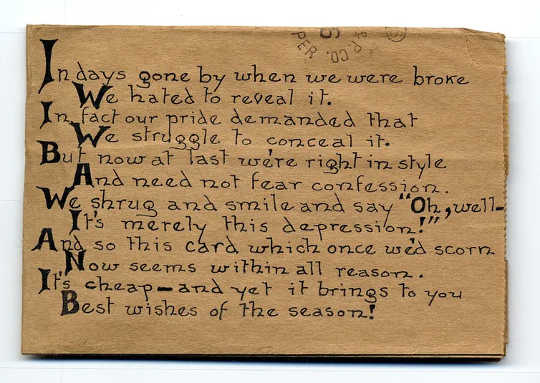 & P. CO.
PER
In days gone by when we were broke
We hated to reveal it.
In fact our pride demanded that
We struggle to conceal it.
But now at last we're right in style
And need not fear confession.
We shrug and smile and say "Oh, well-
It's merely this depression!"
And so this card which once we'd scorn
Now seems within all reason.
It's cheap - and yet it brings to you
Best wishes of the season!